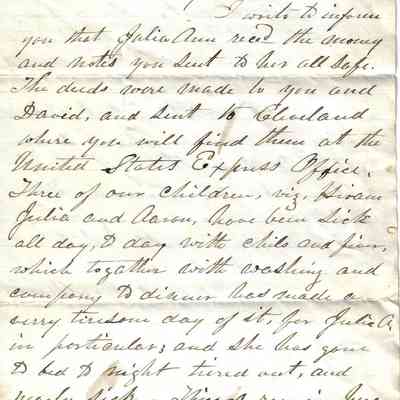 I write to inform
you that Julia Ann recd the money
and notes you sent to her all safe.
The deeds were made to you and
David, and sent to Cleveland
where you will find them at the
United States Express Office.
Three of our children, viz, Hiram
Julia and Aaron, have been sick
all day, to day with chils and fever,
which togather with washing and
company to dinner has made a
verry tiresom day of it, for Julia A,
in particular; and she has gone
to bed to night tired out, and
nearly sick